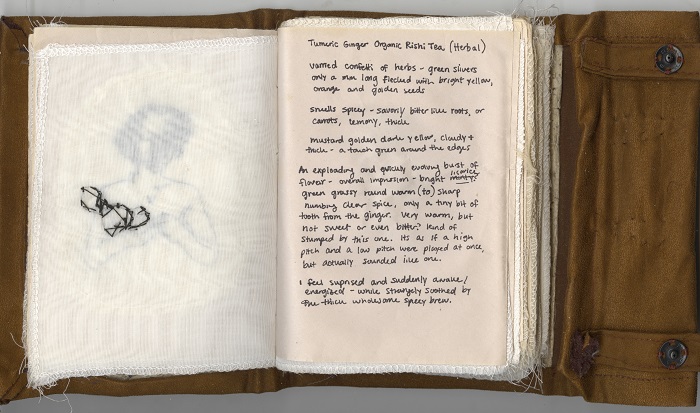 Tumeric Ginger Organic Rishi Tea (Herbal)
varried confetti of herbs - green slivers
only a mm long flecked with bright yellow,
orange and golden seeds
smells spicey - savorly bitter like roots, or
carrots, lemony, thick
mustard golden dark yellow, cloudy +
thick - a touch green around the edges
An exploading and quickly evolving burst of
flavor - overall impression - bright minty? licorice
green grassy round warm (to) sharp
numbing clear spice, only a tiny bit of
tooth from the ginger. Very warm, but
not sweet or even bitter? Kind of
stumped by this one. Its as if a high
pitch and a low pitch were played at once,
but actually sounded like one.
I feel suprised and suddenly awake/
energized - while strangely soothed by
the thick wholesome spicey brew.